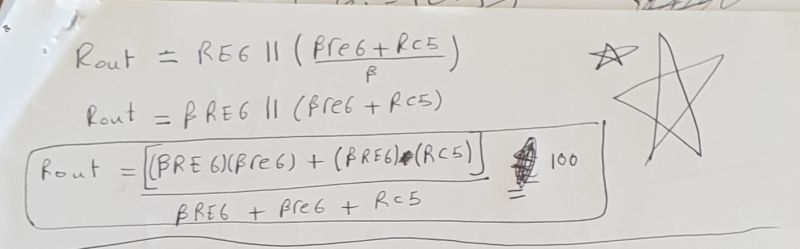 Rout = RE6 || (βre6 + Rc5 / β)
Rout = βRE6 || (βre6 + Rc5)
Rout = [(βRE6)(βre6) + (βRE6)•(RC5)] / βRE6 + βre6 + Rc5 100